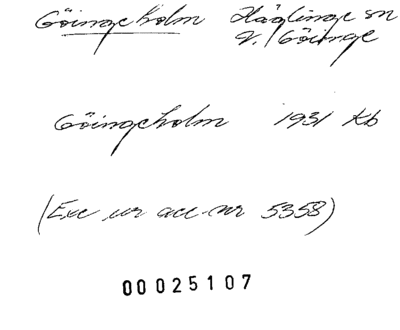 Göingeholm Häglinge sn
V. Göinge
Göingeholm 1931 Kb
(Exc ur acc. nr 5358)
00025107